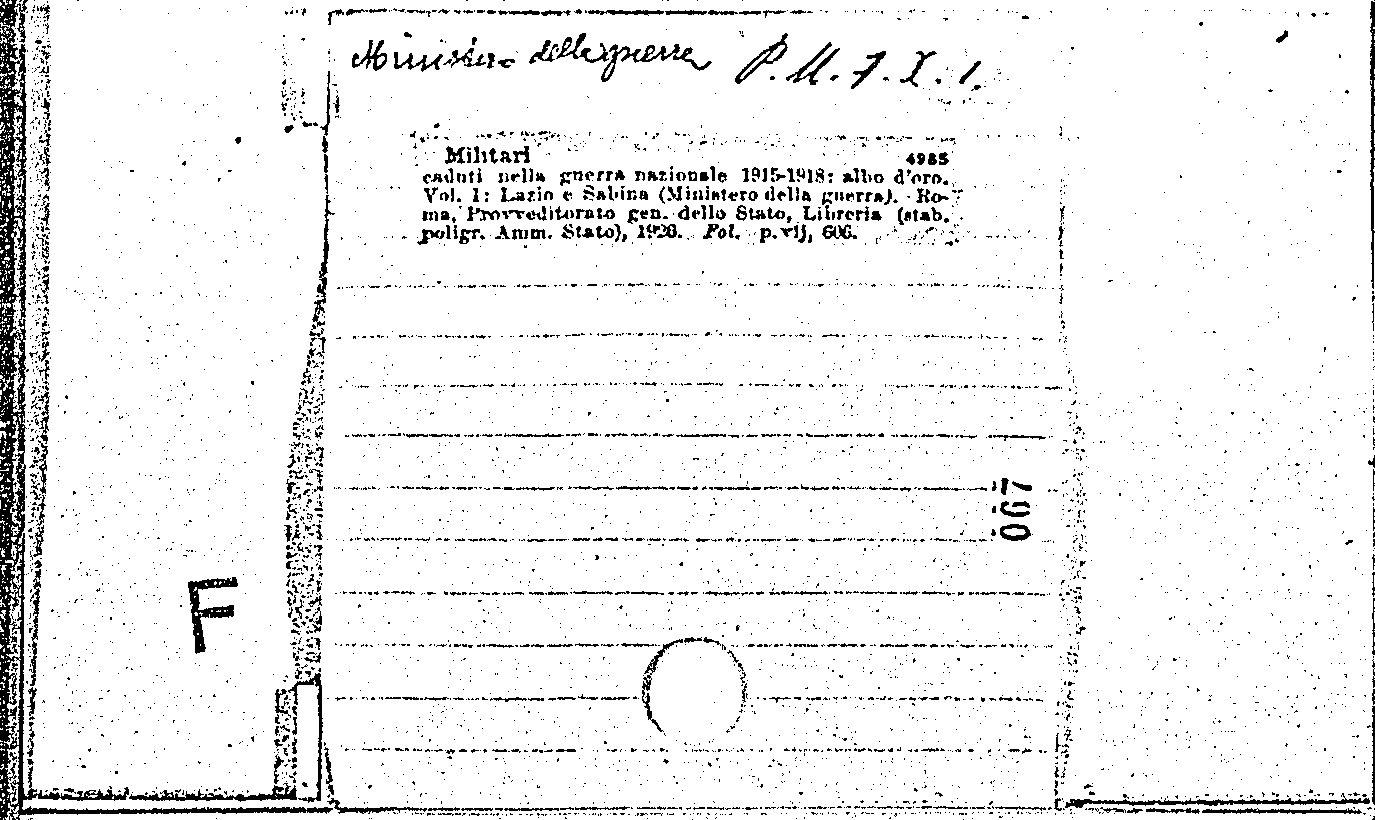 Ministero della guerra P. M. 7. X. 1.
Militari 4985
caduti nella guerra nazionale 1915-1918: albo d'oro.
Vol. I: Lazio e Sabina (Ministero della guerra). Ro-
ma, Provveditorato gen. dello Stato, Libreria (stab.
poligr. Amm. Stato), 1926. Fol. p. vij, 606.
067
F